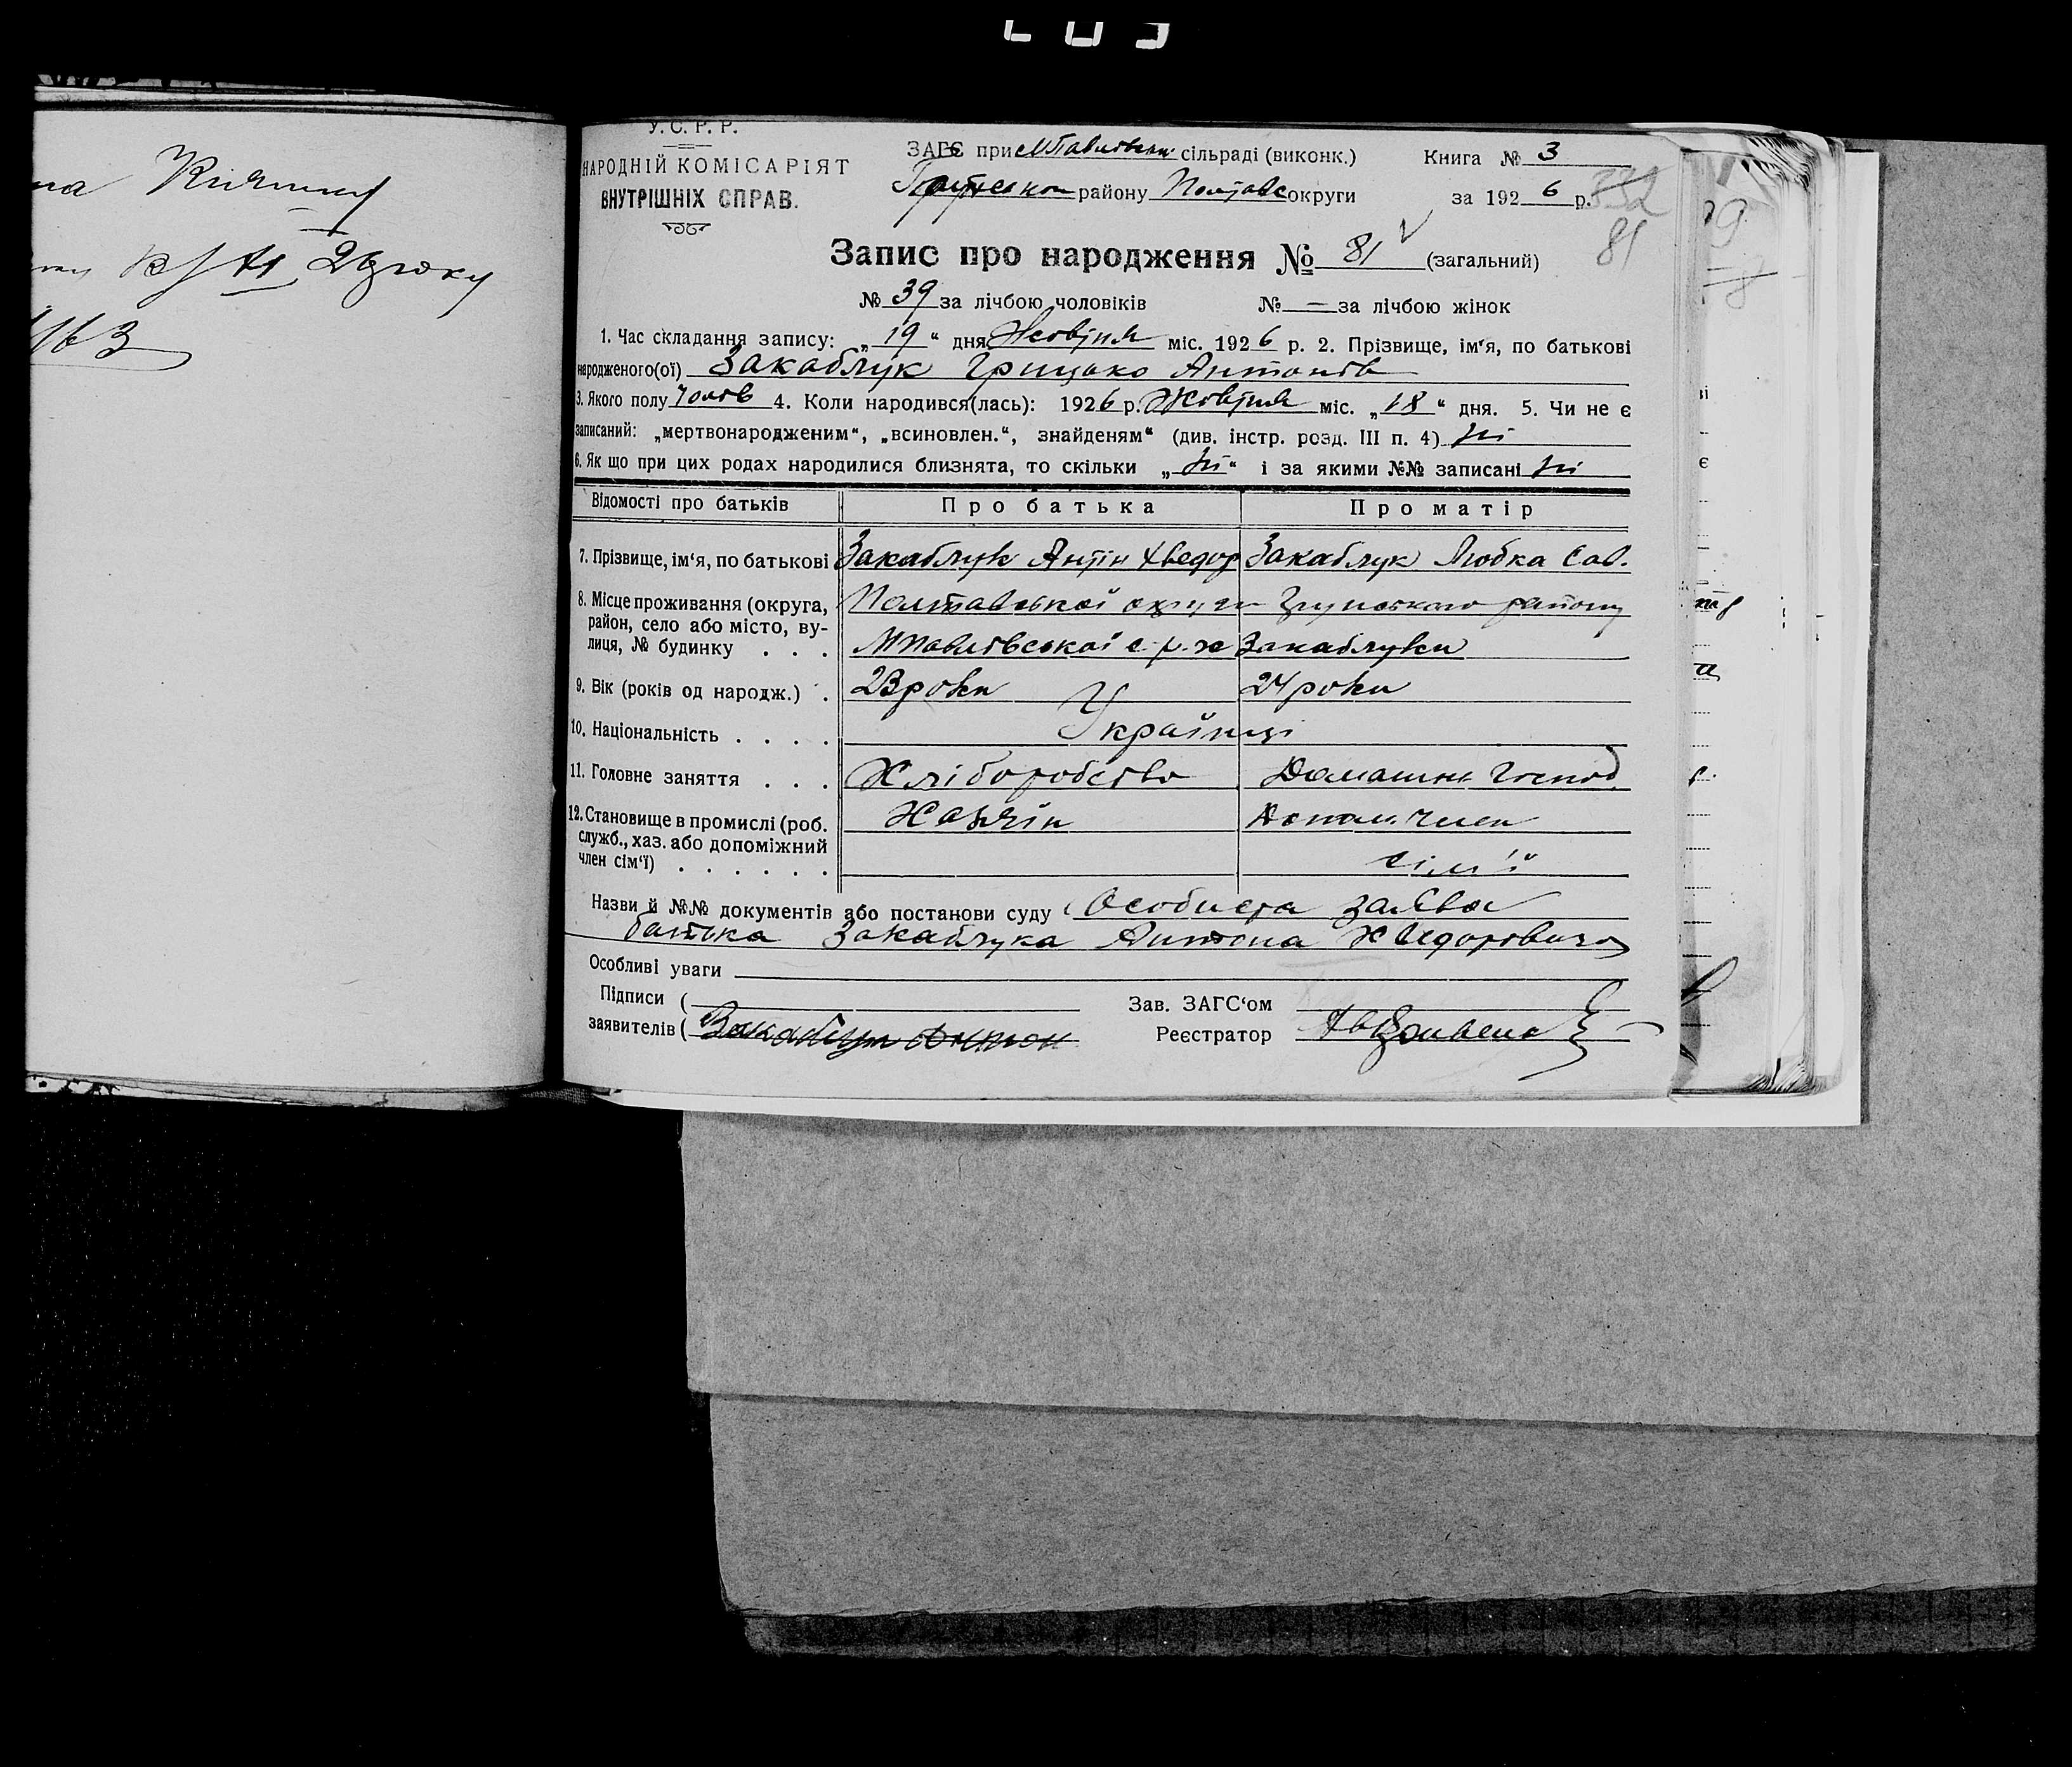 на
203
У. С. Р. Р.
НАРОДНІЙ КОМІСАРІЯТ
ВНУТРІШНІХ СПРАВ.
ЗАГС при МПавлівськ. сільраді (виконк.)
району Полтавс округи
Книга № 3
за 1926 р.
332
81
Запис про народження № 81 (загальний)
№ 39 за лічбою чоловіків № — за лічбою жінок
1. Час складання запису: „19“ дня Жовтня міс. 1926 р. 2. Прізвище, ім'я, по батькові
народженого(ої) Закаблук Грицько Антонів
3. Якого полу Чолов 4. Коли народився(лась): 1926 р. Жовтня міс. „18“ дня. 5. Чи не є
записаний: „мертвонародженим“, „всиновлен.“, знайденям“ (див. інстр. розд. III п. 4) ні
6. Як що при цих родах народилися близнята, то скільки „ні“ і за якими №№ записані ні
Відомості про батьків Про батька Про матір
7. Прізвище, ім'я, по батькові Закаблук Антін Хведор Закаблук Любка Сав.
8. Місце проживання (округа, Полтавської округи району
район, село або місто, ву- МПавлівської с.р. х Закаблуки
лиця, № будинку . . .
9. Вік (років од народж.) . 23 роки 24 роки
10. Національність . . . . Українці
11. Головне заняття . . . Хліборобство Домашнє Господ.
12. Становище в промислі (роб. Хазяїн Допом. Член
служб., хаз. або допоміжний
член сім'ї) . . . . . . сім'ї
Назви й №№ документів або постанови суду ( Особиста заява
батька Закаблука Антона Хведоровича
Особливі уваги
Підписи ( Зав. ЗАГС'ом
заявителів ( Закаблук Антон Реєстратор